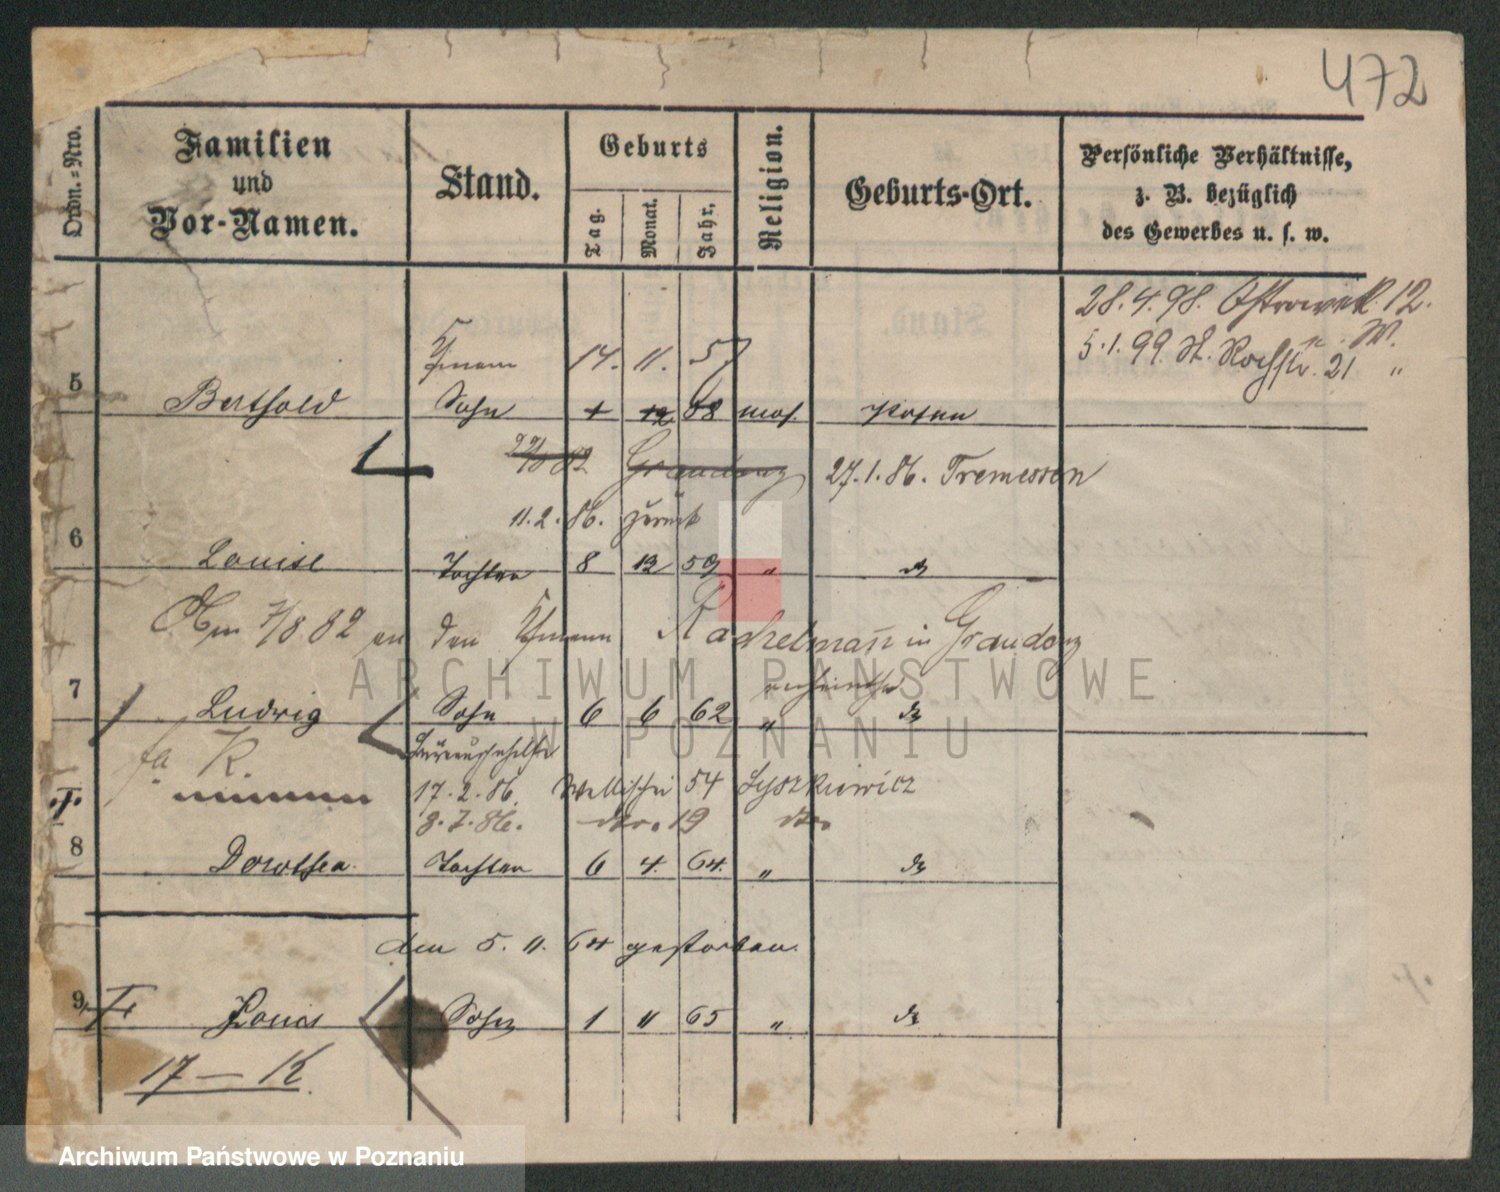 472
Ordn.-Nro.
Familien und Vor-Namen.
Stand.
Geburts
Tag.
Monat.
Jahr.
Religion.
Geburts-Ort.
Persönliche Verhältnisse,
z. B. bezüglich
des Gewerbes u. s. w.
28.4.98. Ostrowek 12.
5.1.99. St. Rochstr. 21 "
W.
14. 11. 57
5 Berthold Sohn 1 12 58 mos. Posen
82 Graudenz 27.1.86. Tremessen
11.2.86. zurück
6 Louise Tochter 8 12 59 "
7/8 82 an den Rachelmann in Graudenz
7 Ludwig Sohn 6 6 62 "
K.
17.2.86. Wallischei 54 Lyszkiewicz
8.7.86. dto. 19 dto.
8 Dorothea Tochter 6 4 64. "
den 5. 11. 64 gestorben.
9 Louis Sohn 1 11 65 "
17 — K.
ARCHIWUM PAŃSTWOWE
W POZNANIU
Archiwum Państwowe w Poznaniu